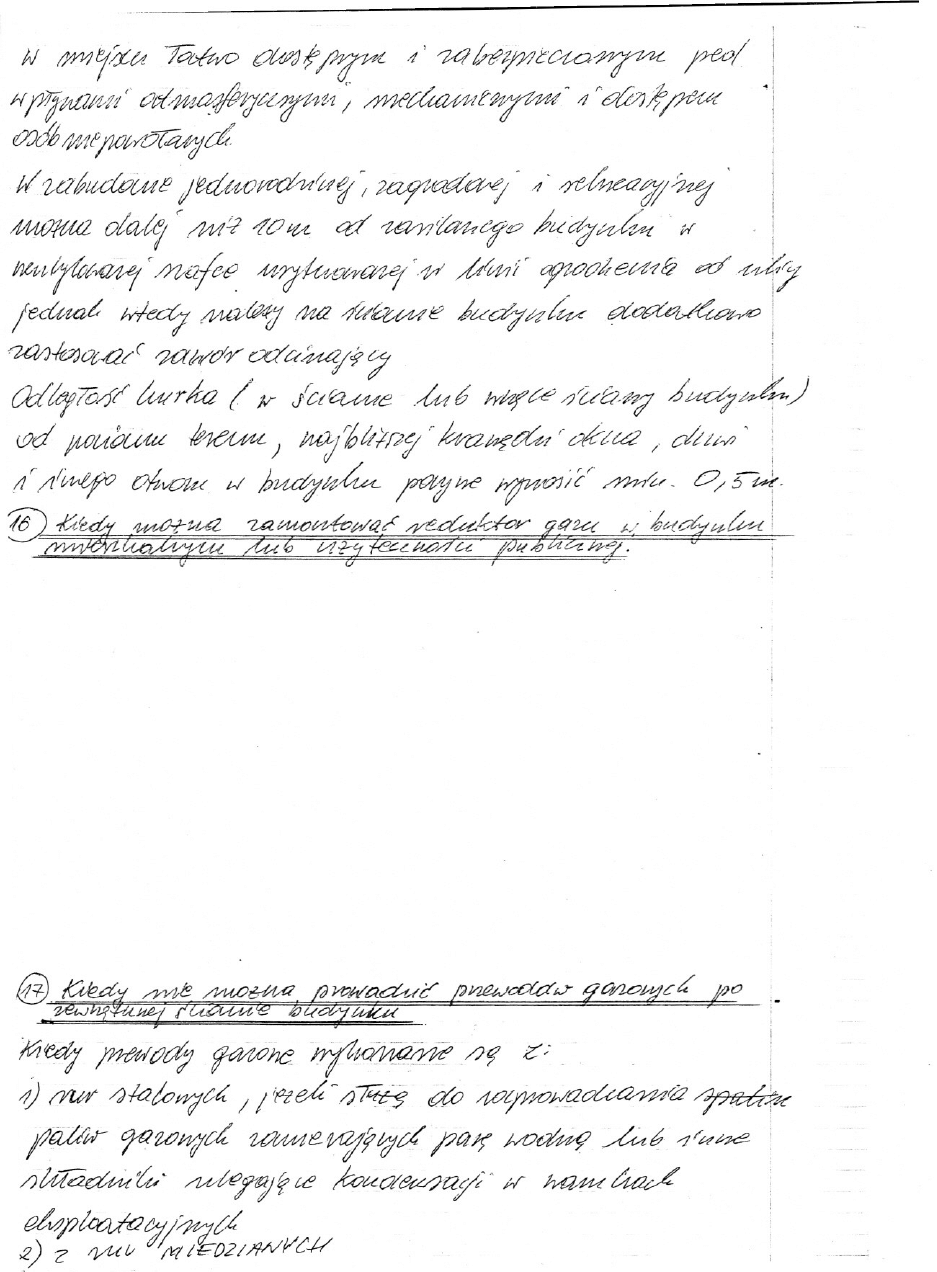 w miejscu łatwo dostępnym i zabezpieczonym pred
wpływami odmasferycznymi, mechanicznymi i dostępem
osób niepowołanych.
W zabudowie jednorodzinnej, zagrodowej i rekreacyjnej
można dalej niż 10m od zasilanego budynku w
wentylowanej szafce usytuowanej w linii ogrodzenia od ulicy
jednak wtedy należy na ścianie budynku dodatkowo
zastosować zawór odcinający
Odległość kurka ( w ścianie lub wnęce ściany budynku)
od poziomu terenu, najbliższej krawędzi okna, drzwi
i innego otworu w budynku powinna wynosić min. 0,5m.
16) Kiedy można zamontować reduktor gazu w budynku
mieszkalnym lub użyteczności publicznej.
17) Kiedy nie można prowadzić przewodów gazowych po
zewnętrznej ścianie budynku
Kiedy przewody gazowe wykonane są z:
1) rur stalowych, jeżeli służą do rozprowadzania spalin
paliw gazowych zawierających parę wodną lub inne
składniki ulegające kondensacji w warunkach
eksploatacyjnych
2) z rur MIEDZIANYCH